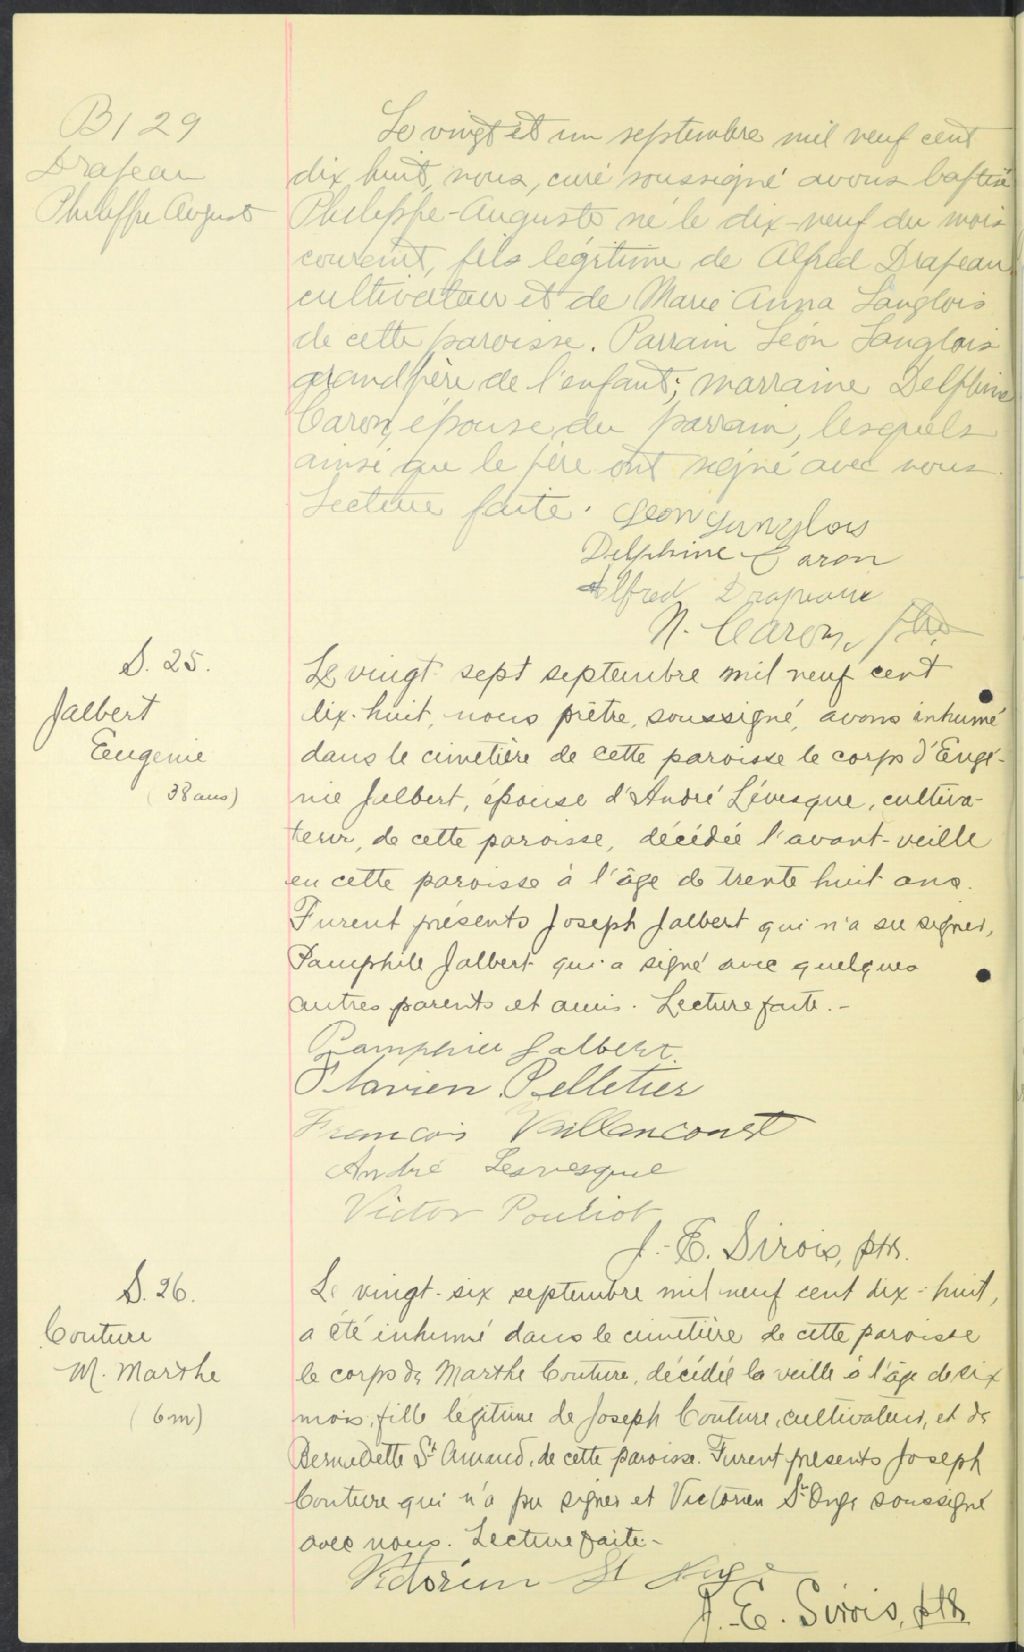 B129
Drapeau
Philippe August
Le vingt et un septembre mil neuf cent
dix huit, nous, curé soussigné avons baptisé
Philippe-Auguste né le dix-neuf du mois
courant, fils légitime de Alfred Drapeau
cultivateur et de Marie Anna Langlois
de cette paroisse. Parrain Léon Langlois
grand père de l'enfant; marraine Delphine
Caron, épouse du parrain, lesquels
ainsi que le père ont signé avec nous.
Lecture faite. Leon Langlois
Delphine Caron
Alfred Drapeau
N. Caron, ptre
S. 25.
Jalbert
Eugenie
(38 ans)
Le vingt sept septembre mil neuf cent
dix-huit, nous prêtre, soussigné, avons inhumé
dans le cimetière de cette paroisse le corps d'Eugé-
nie Jalbert, épouse d'André Lévesque, cultiva-
teur, de cette paroisse, décédée l'avant-veille
en cette paroisse à l'âge de trente huit ans.
Furent présents Joseph Jalbert qui n'a su signer,
Pamphile Jalbert qui a signé avec quelques
autres parents et amis. Lecture faite.-
Pamphile Jalbert.
Flavien Pelletier
Francois Vaillancourt
André Lesvesque
Victor Pouliot
J.-E. Sirois, ptr.
S. 26.
Couture
M. Marthe
(6m)
Le vingt-six septembre mil neuf cent dix-huit,
a été inhumé dans le cimetière de cette paroisse
le corps de Marthe Couture, décédée la veille à l'âge de six
mois, fille légitime de Joseph Couture, cultivateur, et de
Bernadette St Amand, de cette paroisse. Furent présents Joseph
Couture qui n'a pu signer et Victorien St-Onge soussigné
avec nous. Lecture faite.-
Victorien St Onge
J.-E. Sirois, ptr